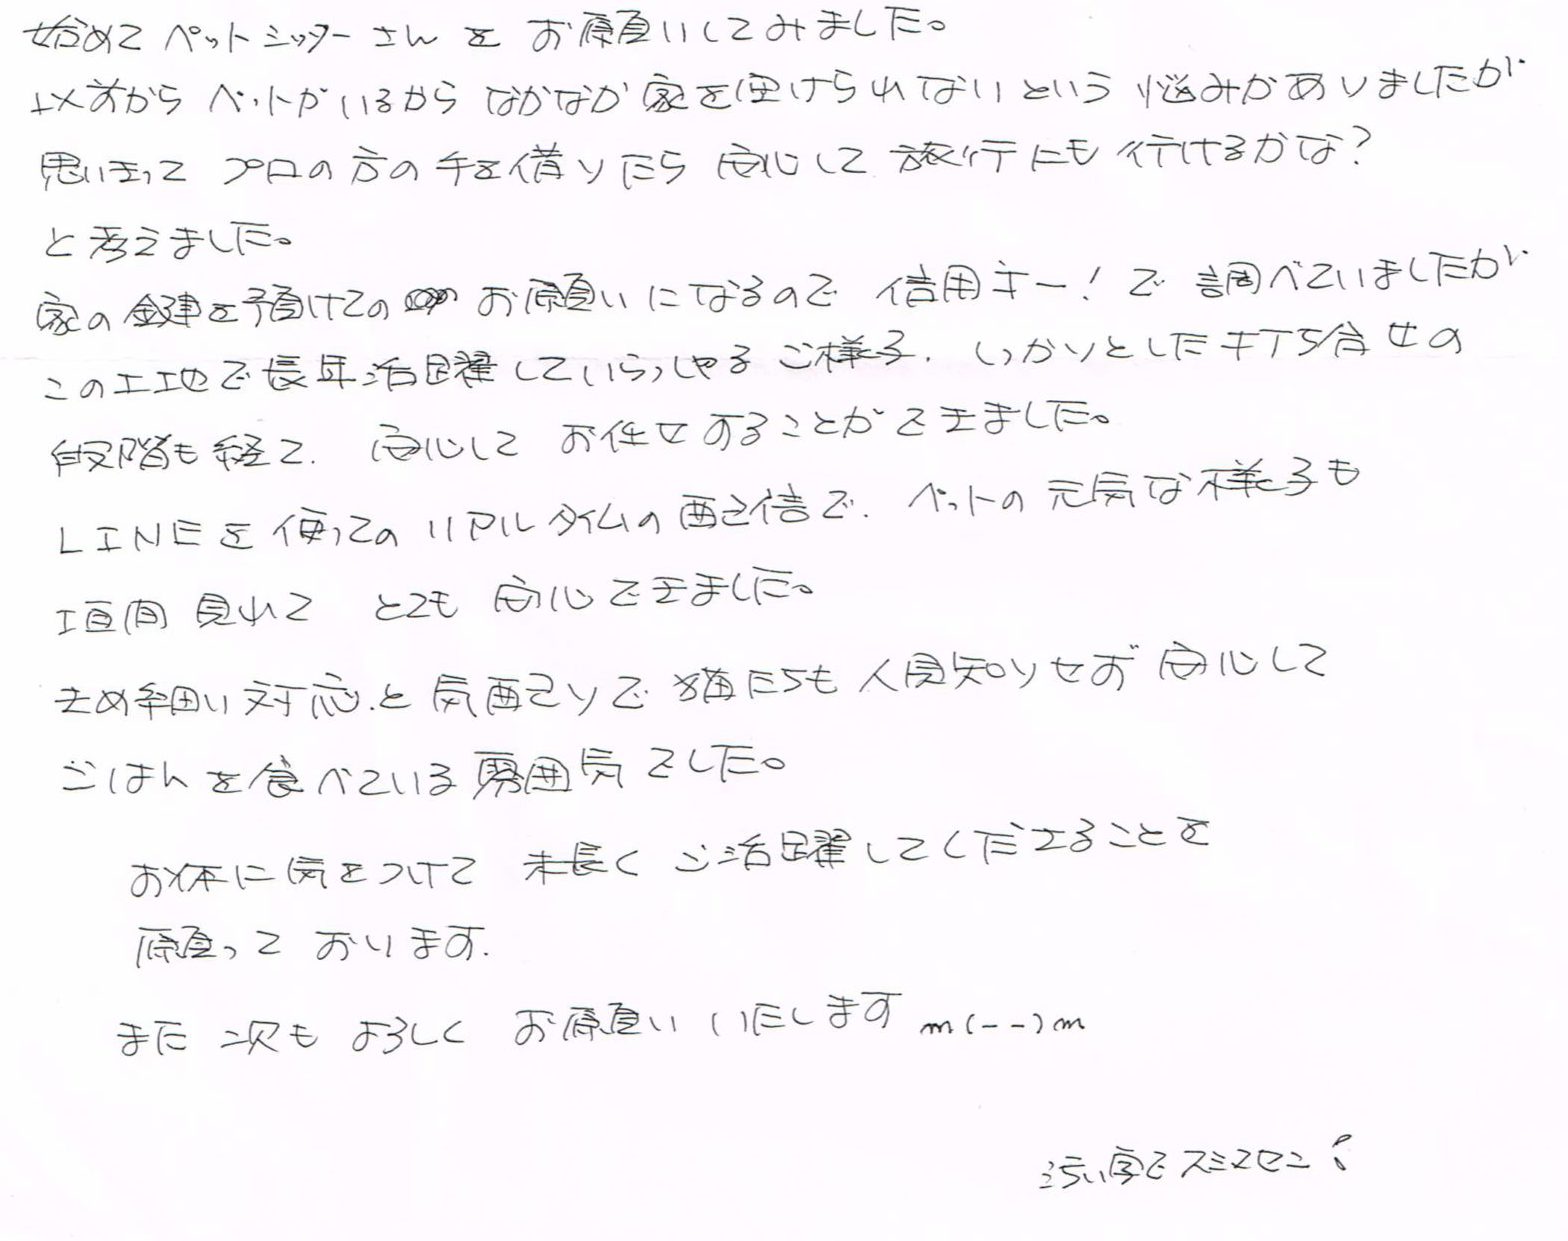 始めて ペットシッターさん を お願いしてみました。
以前から ペットがいるから なかなか 家を空けられない という 悩みがありましたが
思いきって プロの方の 手を借りたら 安心して 旅行にも 行けるかな?
と 考えました。
家の 鍵を預けての お願い になるので 信用キー! で 調べていましたが
この土地で長年活躍していらっしゃる ご様子、しっかりとした打ち合せの
段階も経て、安心して お任せすることができました。
LINEを使っての リアルタイムの配信で、ペットの 元気な様子も
垣間見れて とても 安心できました。
きめ細い対応と気配りで 猫たちも人見知りせず安心して
ごはんを食べている雰囲気でした。
お体に気をつけて 末長く ご活躍してくださることを
願って おります。
また 次も よろしく お願い いたします m(--)m
汚い字でスミマセン!